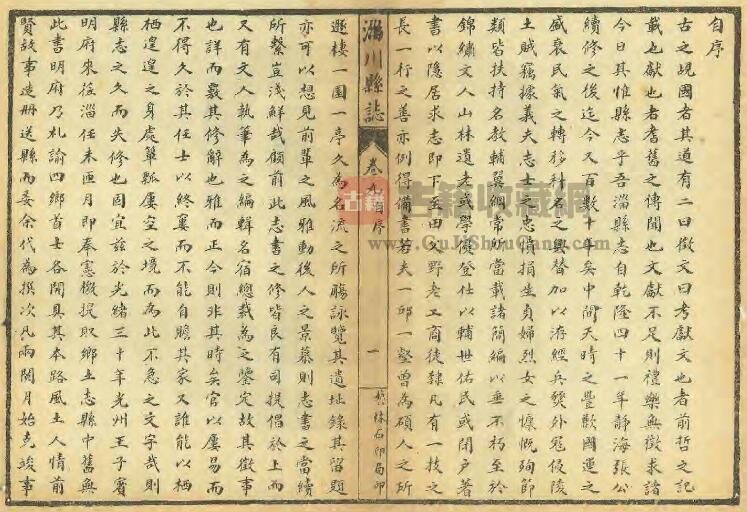 自序
古之覘國者其道有二曰徵文曰考獻文也者前哲之記
載也獻也者耆舊之傳聞也文獻不足則禮樂無徵求諸
今日其惟縣志乎吾淄縣志自乾隆四十一年靜海張公
續修之後迄今又百數十年矣中間天時之豐歉國運之
盛衰民氣之轉移科名之興替加以洊經兵燹外寇侵陵
土賊竊據義夫志士之忠憤捐生貞婦烈女之慷慨殉節
類皆扶持名教輔翼綱常所當載諸簡編以垂不朽至於
錦繡文人山林遺老或學優登仕以輔世佑民或閉戶著
書以隱居求志即下至田父野老工商徒隸凡有一技之
長一行之善亦例得備書若夫一邱一壑曾為碩人之所
淄川縣誌
卷九 自序
一
藝林石印局印
遯棲一園一序久為名流之所觴詠覽其遺址錄其留題
亦可以想見前輩之風雅動後人之景慕則志書之當續
所繫豈淺鮮哉顧前此志書之修皆良有司提倡於上而
又有文人執筆為之編輯名宿總裁為之鑒定故其徵事
也詳而覈其修辭也雅而正今則非其時矣官以屢易而
不得久於其任士以終窶而不能自贍其家又誰能以栖
栖遑遑之身處簞瓢屢空之境而為此不急之文字哉則
縣志之久而失修也固宜茲於光緒三十年光州王子賓
明府來莅淄任未匝月即奉憲檄提取鄉土志縣中舊無
此書明府乃札諭四鄉首士各開具其本路風土人情前
賢故事造冊送縣而委余代為撰次凡兩閱月始克竣事
古籍收藏網
www.GuJiShouCang.com